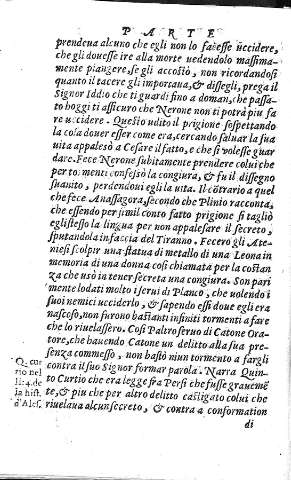 PARTE
prendeua alcuno che egli non lo facesse uccidere,
che gli douesse ire alla morte uedendolo massima-
mente piangere, se gli accostò, non ricordandosi
quanto il tacere gli importaua, & dissegli, prega il
Signor Iddio che ti guardi fino a doman, che passa-
to hoggi ti assicuro che Nerone non ti potrà piu fa
re uccidere. Questo udito il prigione sospettando
la cosa douer esser come era, cercando saluar la sua
uita appalesò a Cesare il fatto, e che si uolesse guar
dare. Fece Nerone subitamente prendere colui che
per tormenti confessò la congiura, & fu il dissegno
suanito, perdendoui egli la uita. Il cõtrario a quel
che fece Anassagora, secondo che Plinio racconta,
che essendo per simil conto fatto prigione si tagliò
eglistesso la lingua per non appalesare il secreto,
sputandola in faccia del Tiranno. Fecero gli Ate-
niesi scolpir una statua di metallo di una Leona in
memoria di una donna così chiamata per la costan
za che usò in tener secreta una congiura. Son pari
mente lodati molto i serui di Planco, che uolendo i
suoi nemici ucciderlo, & sapendo essi doue egli era
nascoso, non furono bastanti infiniti tormenti a fare
che lo riuelassero. Così l'altro seruo di Catone Ora-
tore, che hauendo Catone un delitto alla sua pre-
senza commesso, non bastò niun tormento a fargli
contra il suo Signor formar parola. Narra Quin-
to Curtio che era legge fra Persi che fusse grauemẽ
te, & piu che per altro delitto castigato colui che
riuelaua alcun secreto, & contra a conformation
di
Q. cur
tio nel
li: 4. de
la hist.
d'Ales.